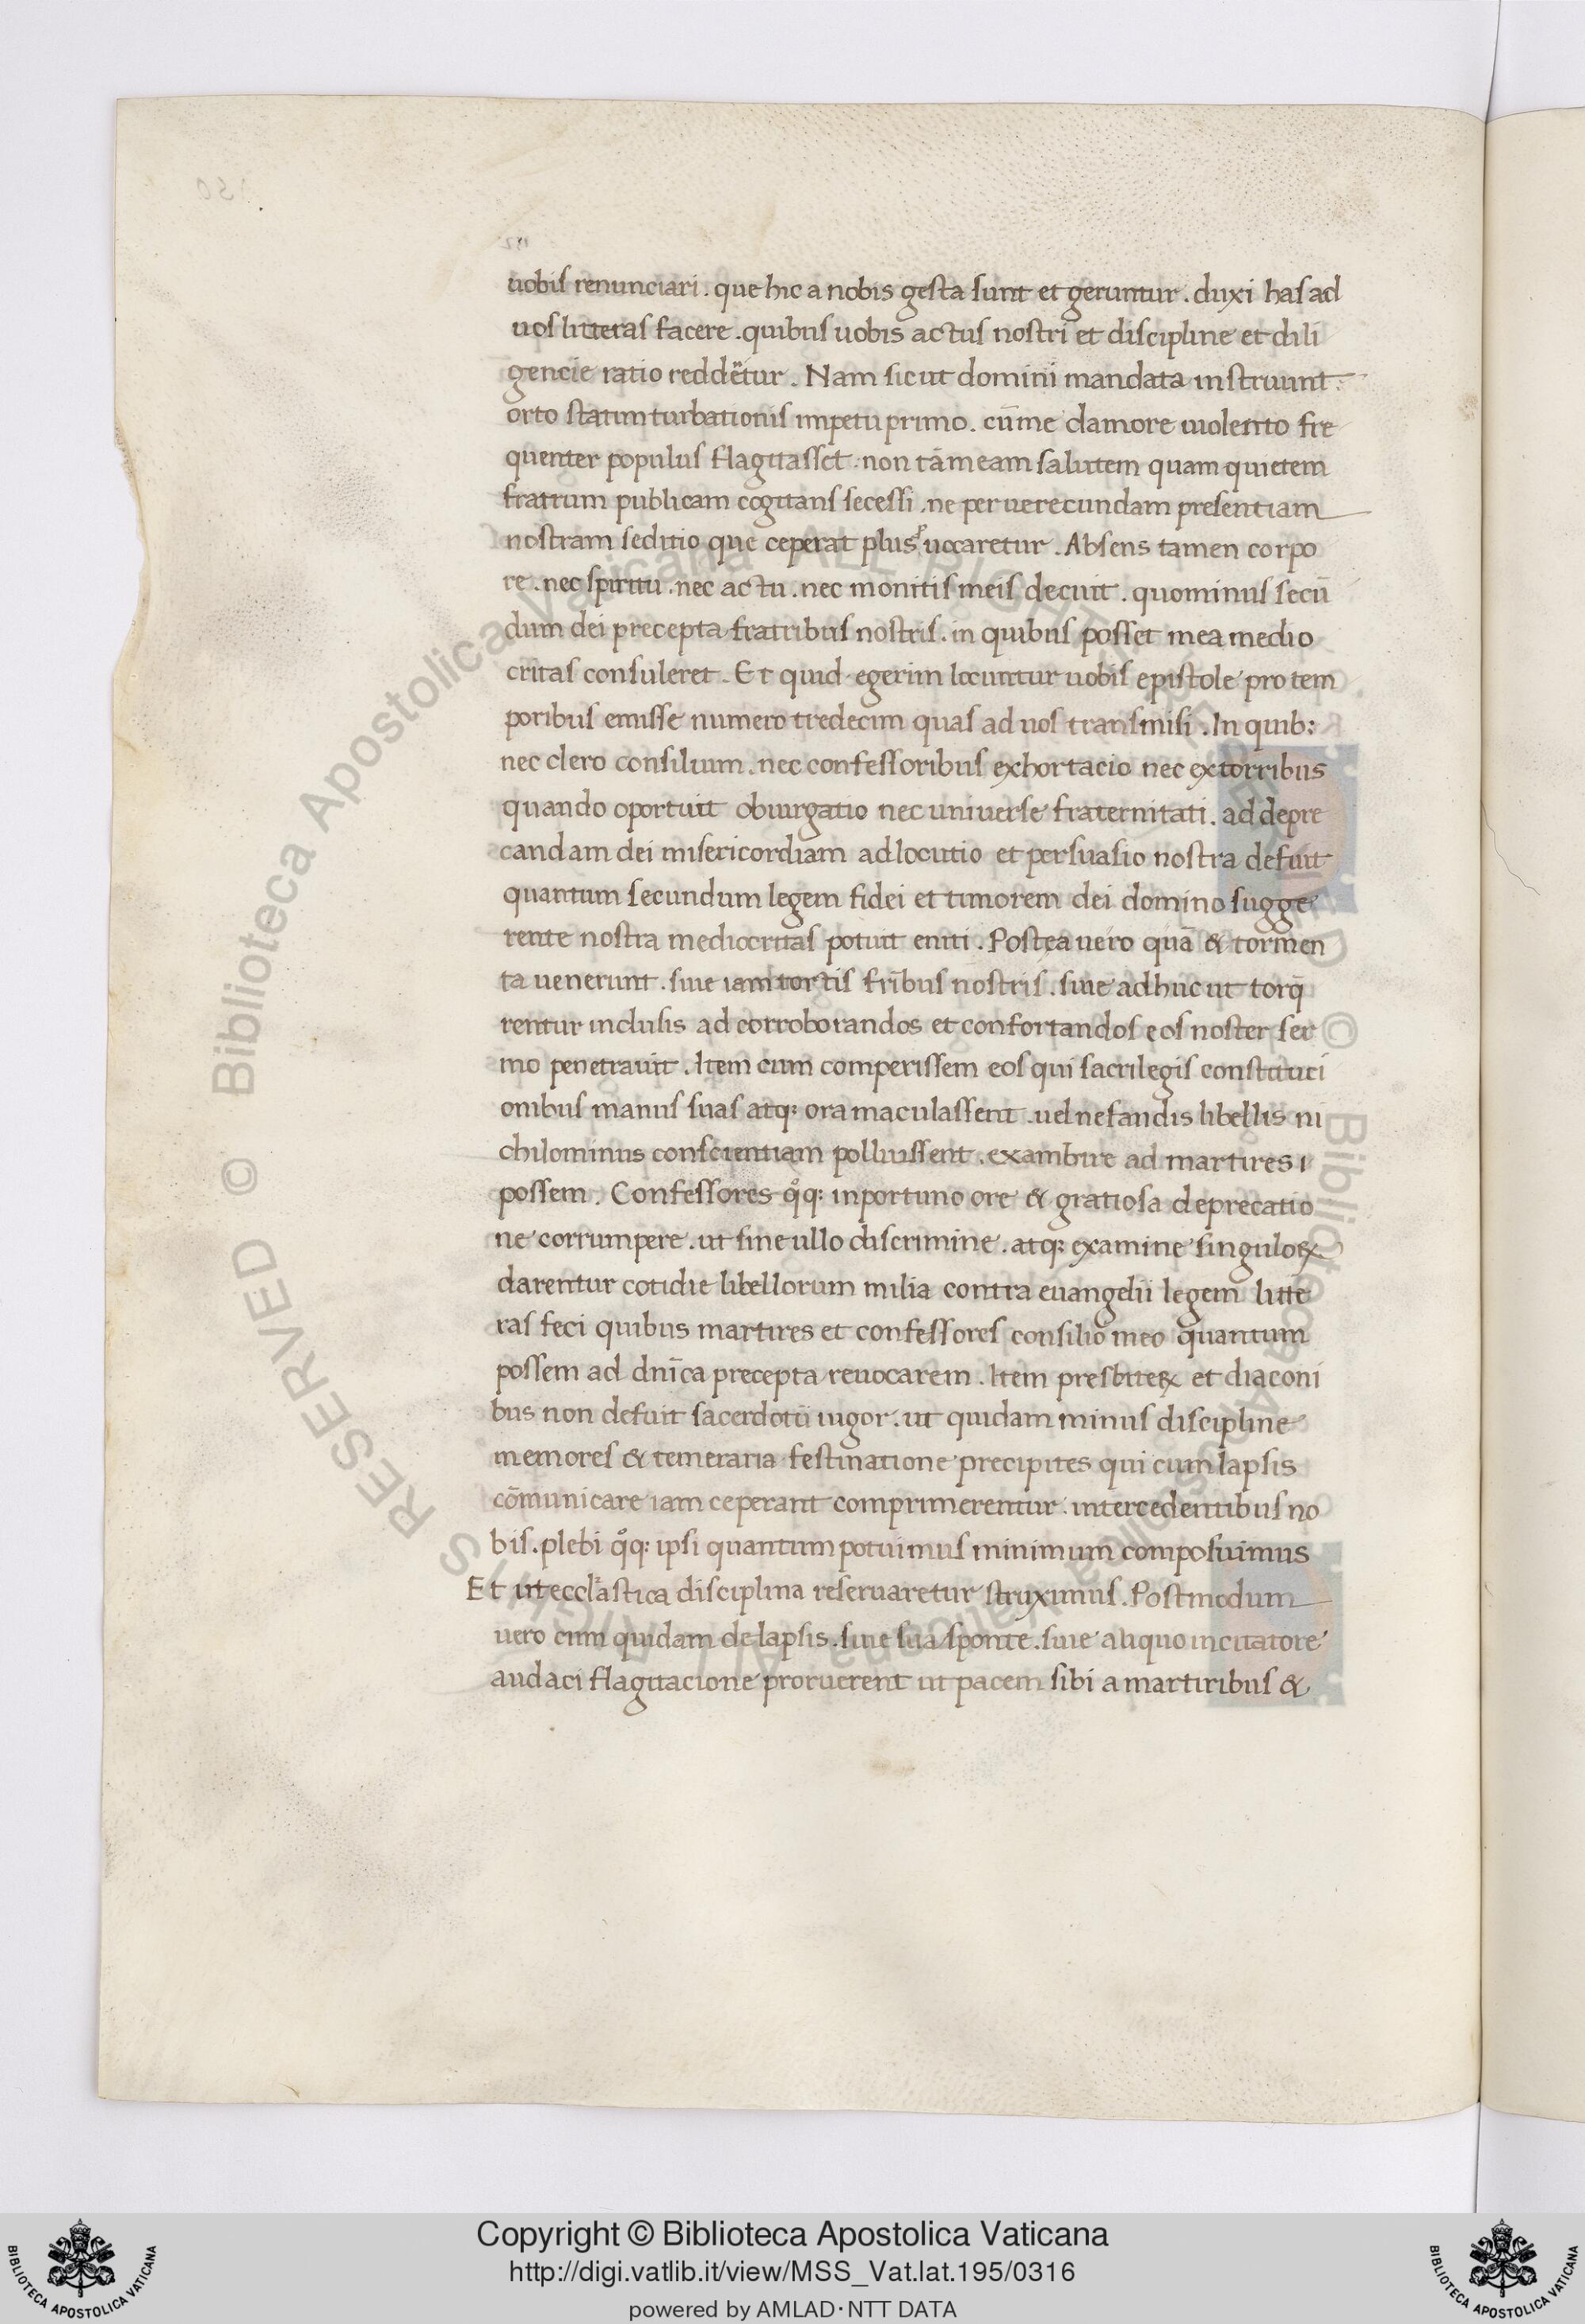 uobis renunciari . que hic a nobis gesta sunt et geruntur . duxi has ad
uos litteras facere . quibus uobis actus nostri et discipline et dili
gencie ratio reddetur . Nam sicut domini mandata instruunt .
orto statim turbationis impetu primo . cu᷑ me clamore uiolento fre
quenter populus flagitasset . non tā meam salutem quam quietem
fratrum publicam cogitans secessi . ne per uerecundam presentiam
nostram seditio que ceperat plus uocaretur . Absens tamen corpo
re . nec spiritu . nec actu . nec monitis meis decuit . quominus secū
dum dei precepta fratribus nostris . in quibus posset mea medio
critas consuleret . Et quid egerim locuntur uobis epistole pro tem
poribus emisse numero tredecim quas ad uos transmisi . In quib:
nec clero consilium . nec confessoribus exhortacio nec extorribus
quando oportuit obiurgatio nec uniuerse fraternitati . ad depre
candam dei misericordiam adlocutio et persuasio nostra defuit
quantum secundum legem fidei et timorem dei domino sugge
rente nostra mediocritas potuit eniti . Postea uero quā & tormen
ta uenerunt . siue iam tortis fr̄ibus nostris . siue adhuc ut torq̄
rentur inclusis ad corroborandos et confortandos eos noster ser
mo penetrauit . Item cum comperissem eos qui sacrilegis constituti
onibus manus suas atq: ora maculassent . uel nefandis libellis ni
chilominus conscientiam polluissent . exambire ad martires i
possem . Confessores qͦq: inportuno ore & gratiosa deprecatio
ne corrumpere . ut sine ullo discrimine . atq: examine singuloꝝ
darentur cotidie libellorum milia contra euangelii legem litte
ras feci quibus martires et confessores consilio meo quantum
possem ad dn̄ica precepta reuocarem . Item presbiteꝝ et diaconi
bus non defuit sacerdotii uigor . ut quidam minus discipline
memores & temeraria festinatione precipites qui cum lapsis
cōmunicare iam ceperant comprimerentur . intercedentibus no
bis . plebi qͦq: ipsi quantum potuimus minimum composuimus
Et ut eccl'astica disciplina reseruaretur struximus . Postmodum
uero cum quidam de lapsis . siue sua sponte . siue aliquo incitatore
audaci flagitacione proruerent ut pacem sibi a martiribus &
Copyright © Biblioteca Apostolica Vaticana
http://digi.vatlib.it/view/MSS_Vat.lat.195/0316
powered by AMLAD·NTT DATA